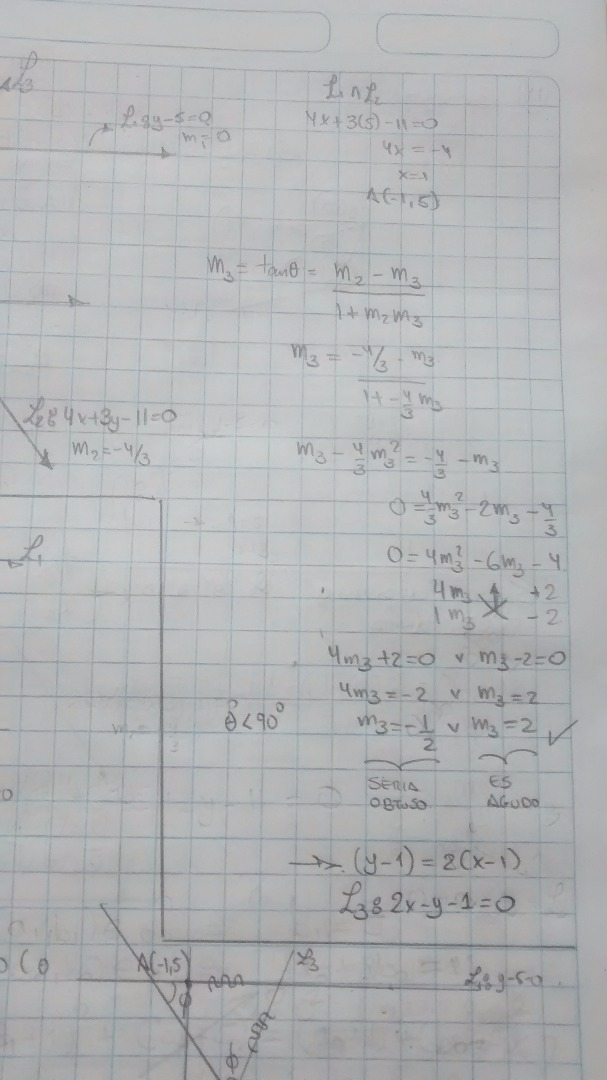 L3
L1 ∩ L2
L1: y-5=0
m1=0
4x+3(5)-11=0
4x = -4
x=-1
A(-1,5)
m3 = tanθ = (m2 - m3)/(1+m2m3)
m3 = (-4/3 - m3)/(1+-4/3 m3)
L2: 4x+3y-11=0
m2=-4/3
m3 - 4/3 m3² = -4/3 - m3
0 = 4/3 m3² - 2m3 - 4/3
L1
0 = 4m3² - 6m3 - 4
4m3 +2
1m3 -2
4m3+2=0 v m3-2=0
4m3=-2 v m3=2
θ<90°
m3=-1/2 v m3=2 ✓
SERIA OBTUSO
ES AGUDO
→ (y-1) = 2(x-1)
L3: 2x-y-1=0
A(-1,5)
L3
L1: y-5=0